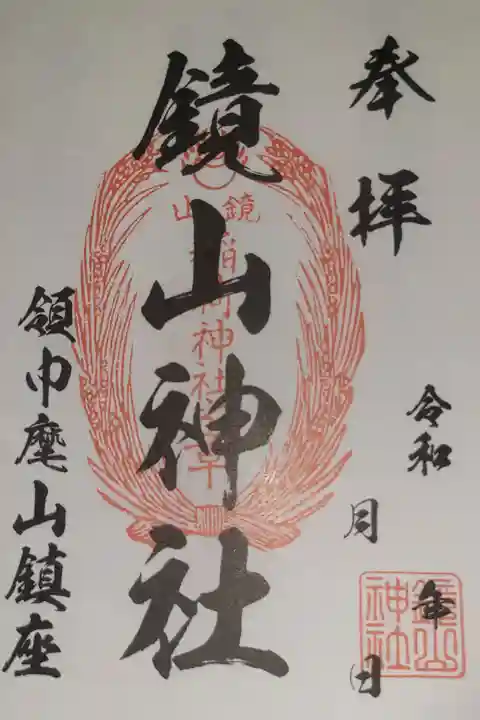 奉拝
令和 年
月 日
鏡山神社
鏡山
稲荷神社
鏡山
神社
領巾麾山鎮座